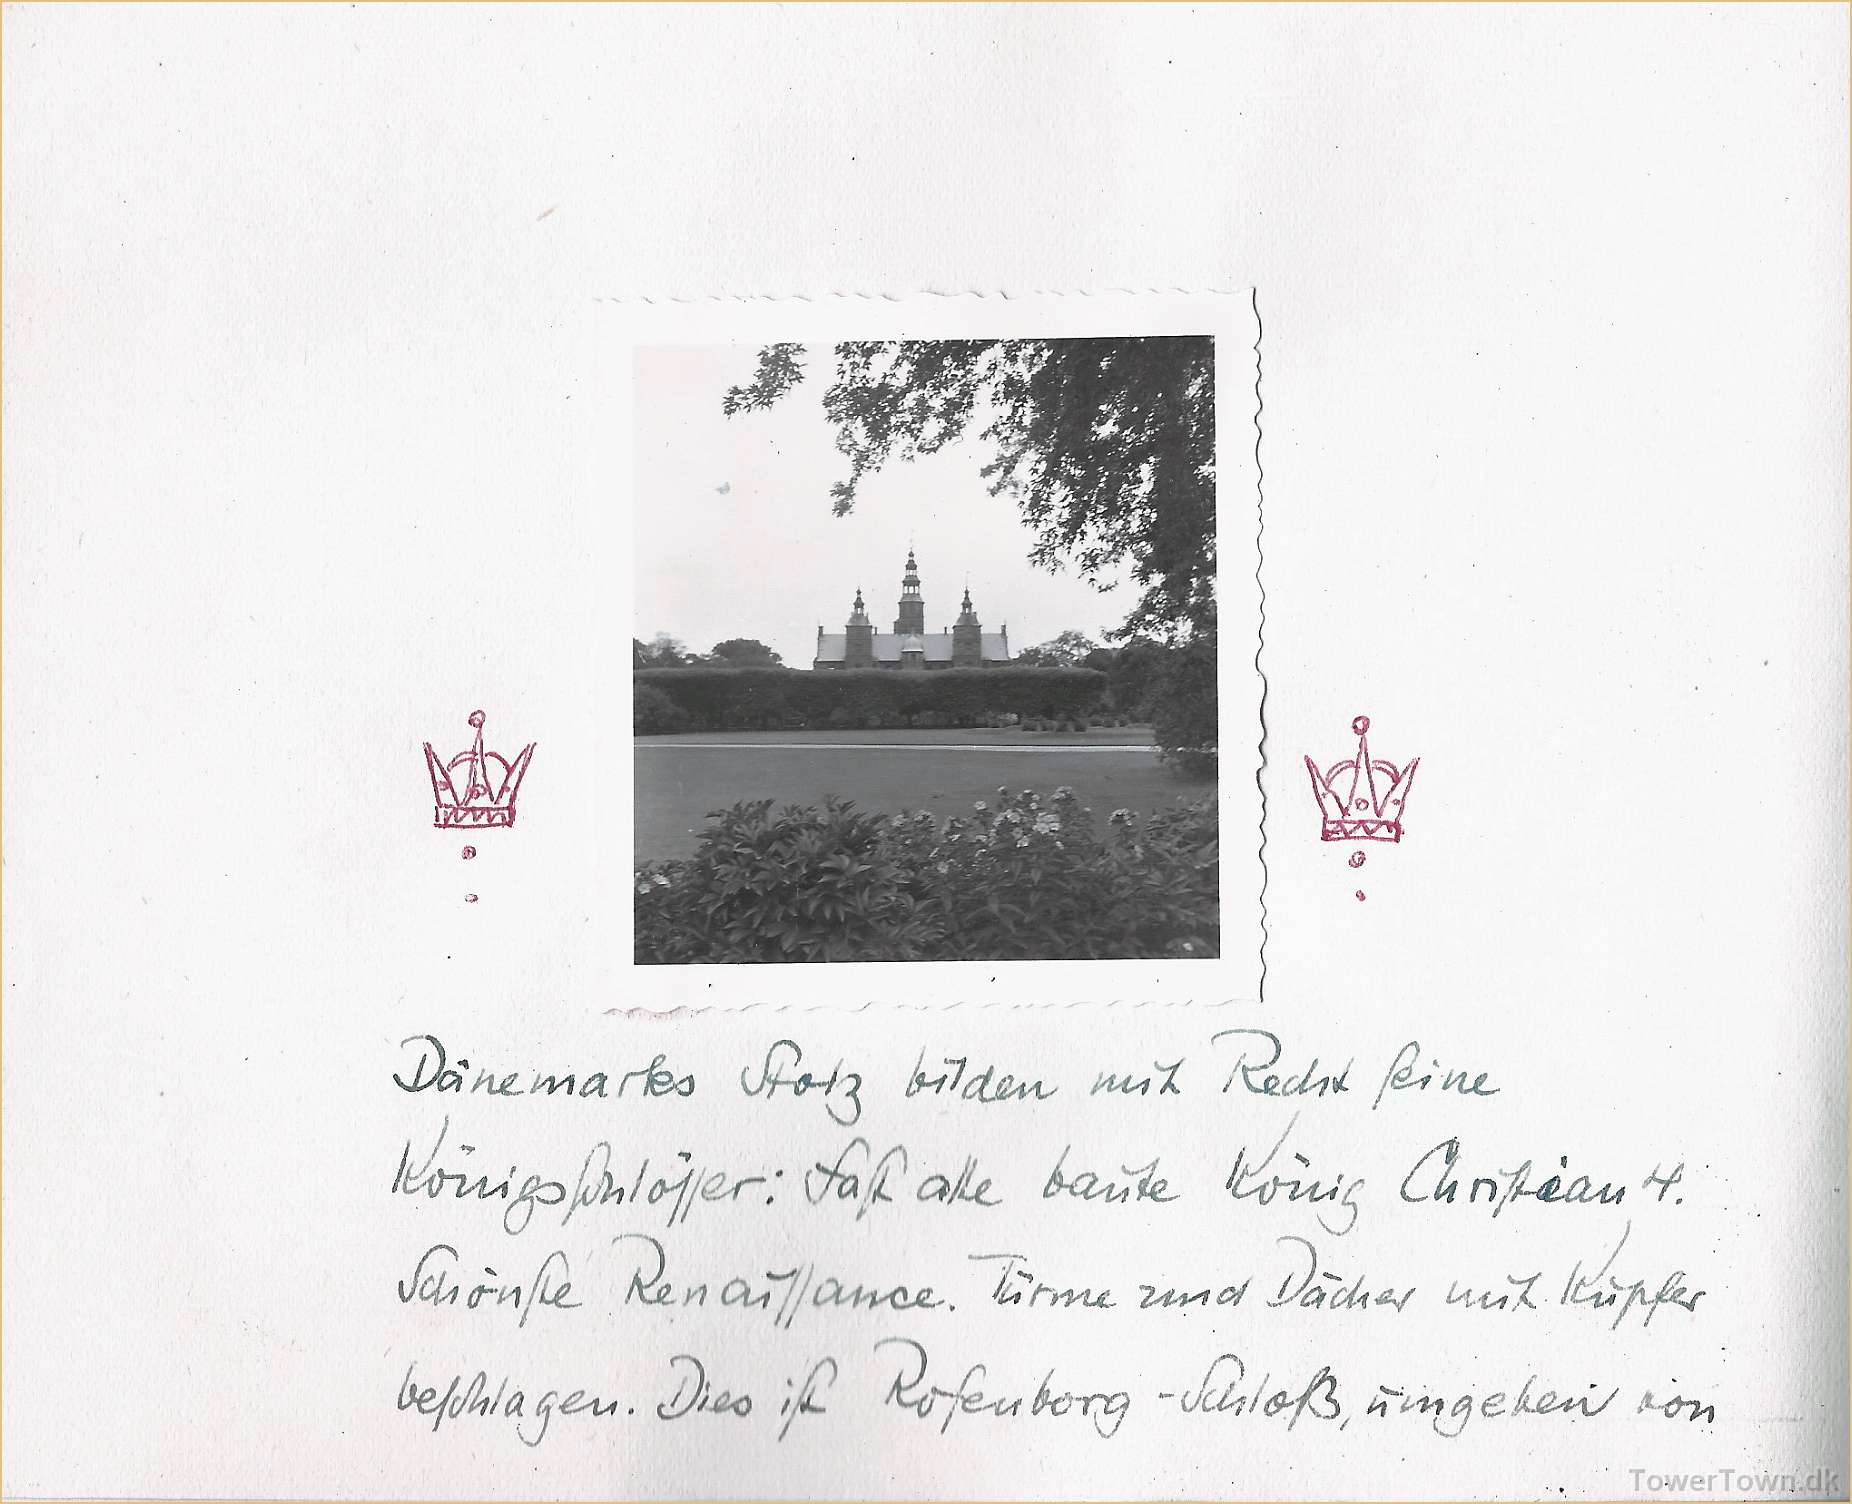 Dänemarks Stolz bilden mit Recht seine
Königsschlösser: Fast alle baute König Christian 4.
Schönste Renaissance. Türme und Dächer mit Kupfer
beschlagen. Dies ist Rosenborg-Schloß, umgeben von
TowerTown.dk